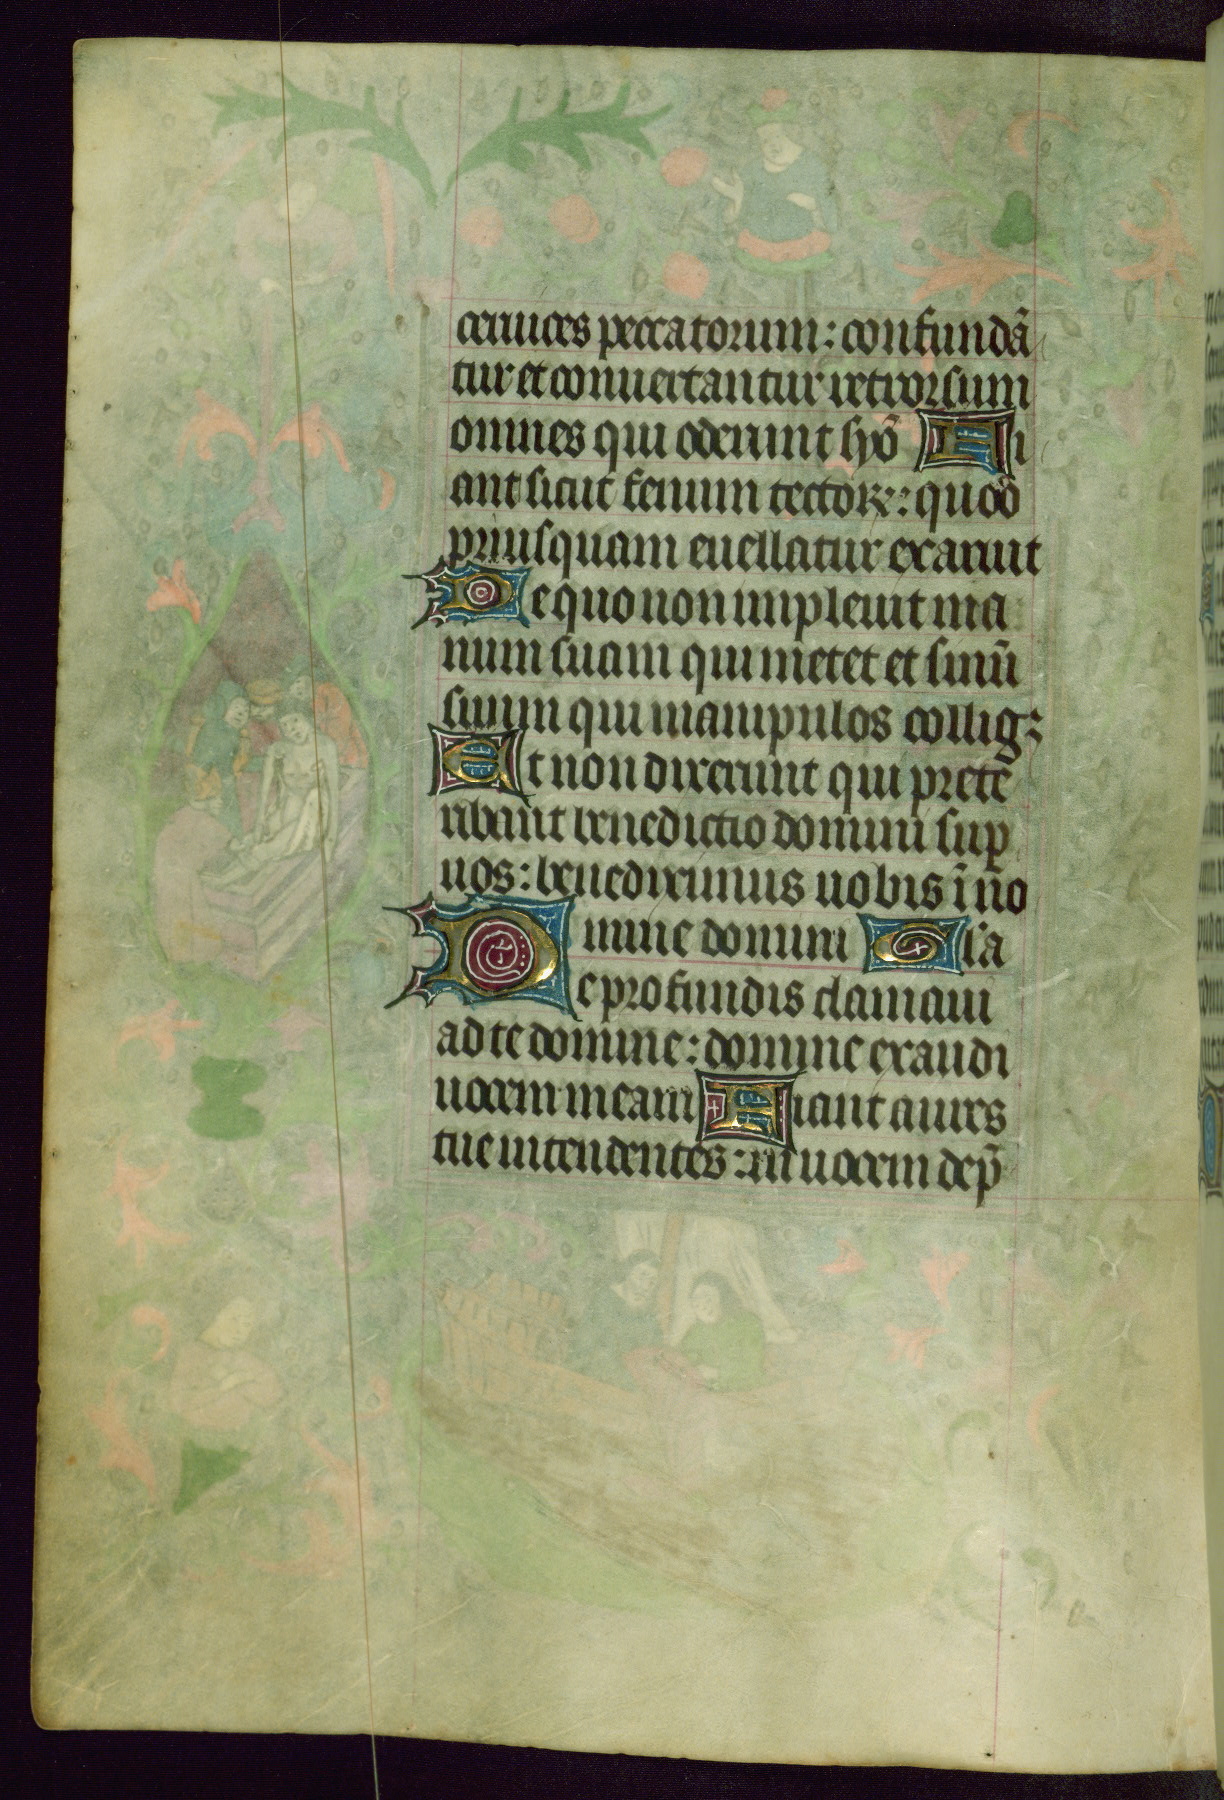 ceruices peccatorum: confundā
tur et conuertantur retrorsum
omnes qui oderunt syō Fi
ant sicut fenum tectoꝝ: quod
priusquam euellatur exaruit
De quo non impleuit ma
num suam qui metet et sinū
suum qui manipulos collig:
Et non dixerunt qui prete
ribant benedictio domini sup
uos: benediximus uobis ī no
mine domini Gl'a
De profundis clamaui
ad te domine: domine exaudi
uocem meam Fiant aures
tue intendentes: in uocem dep̄